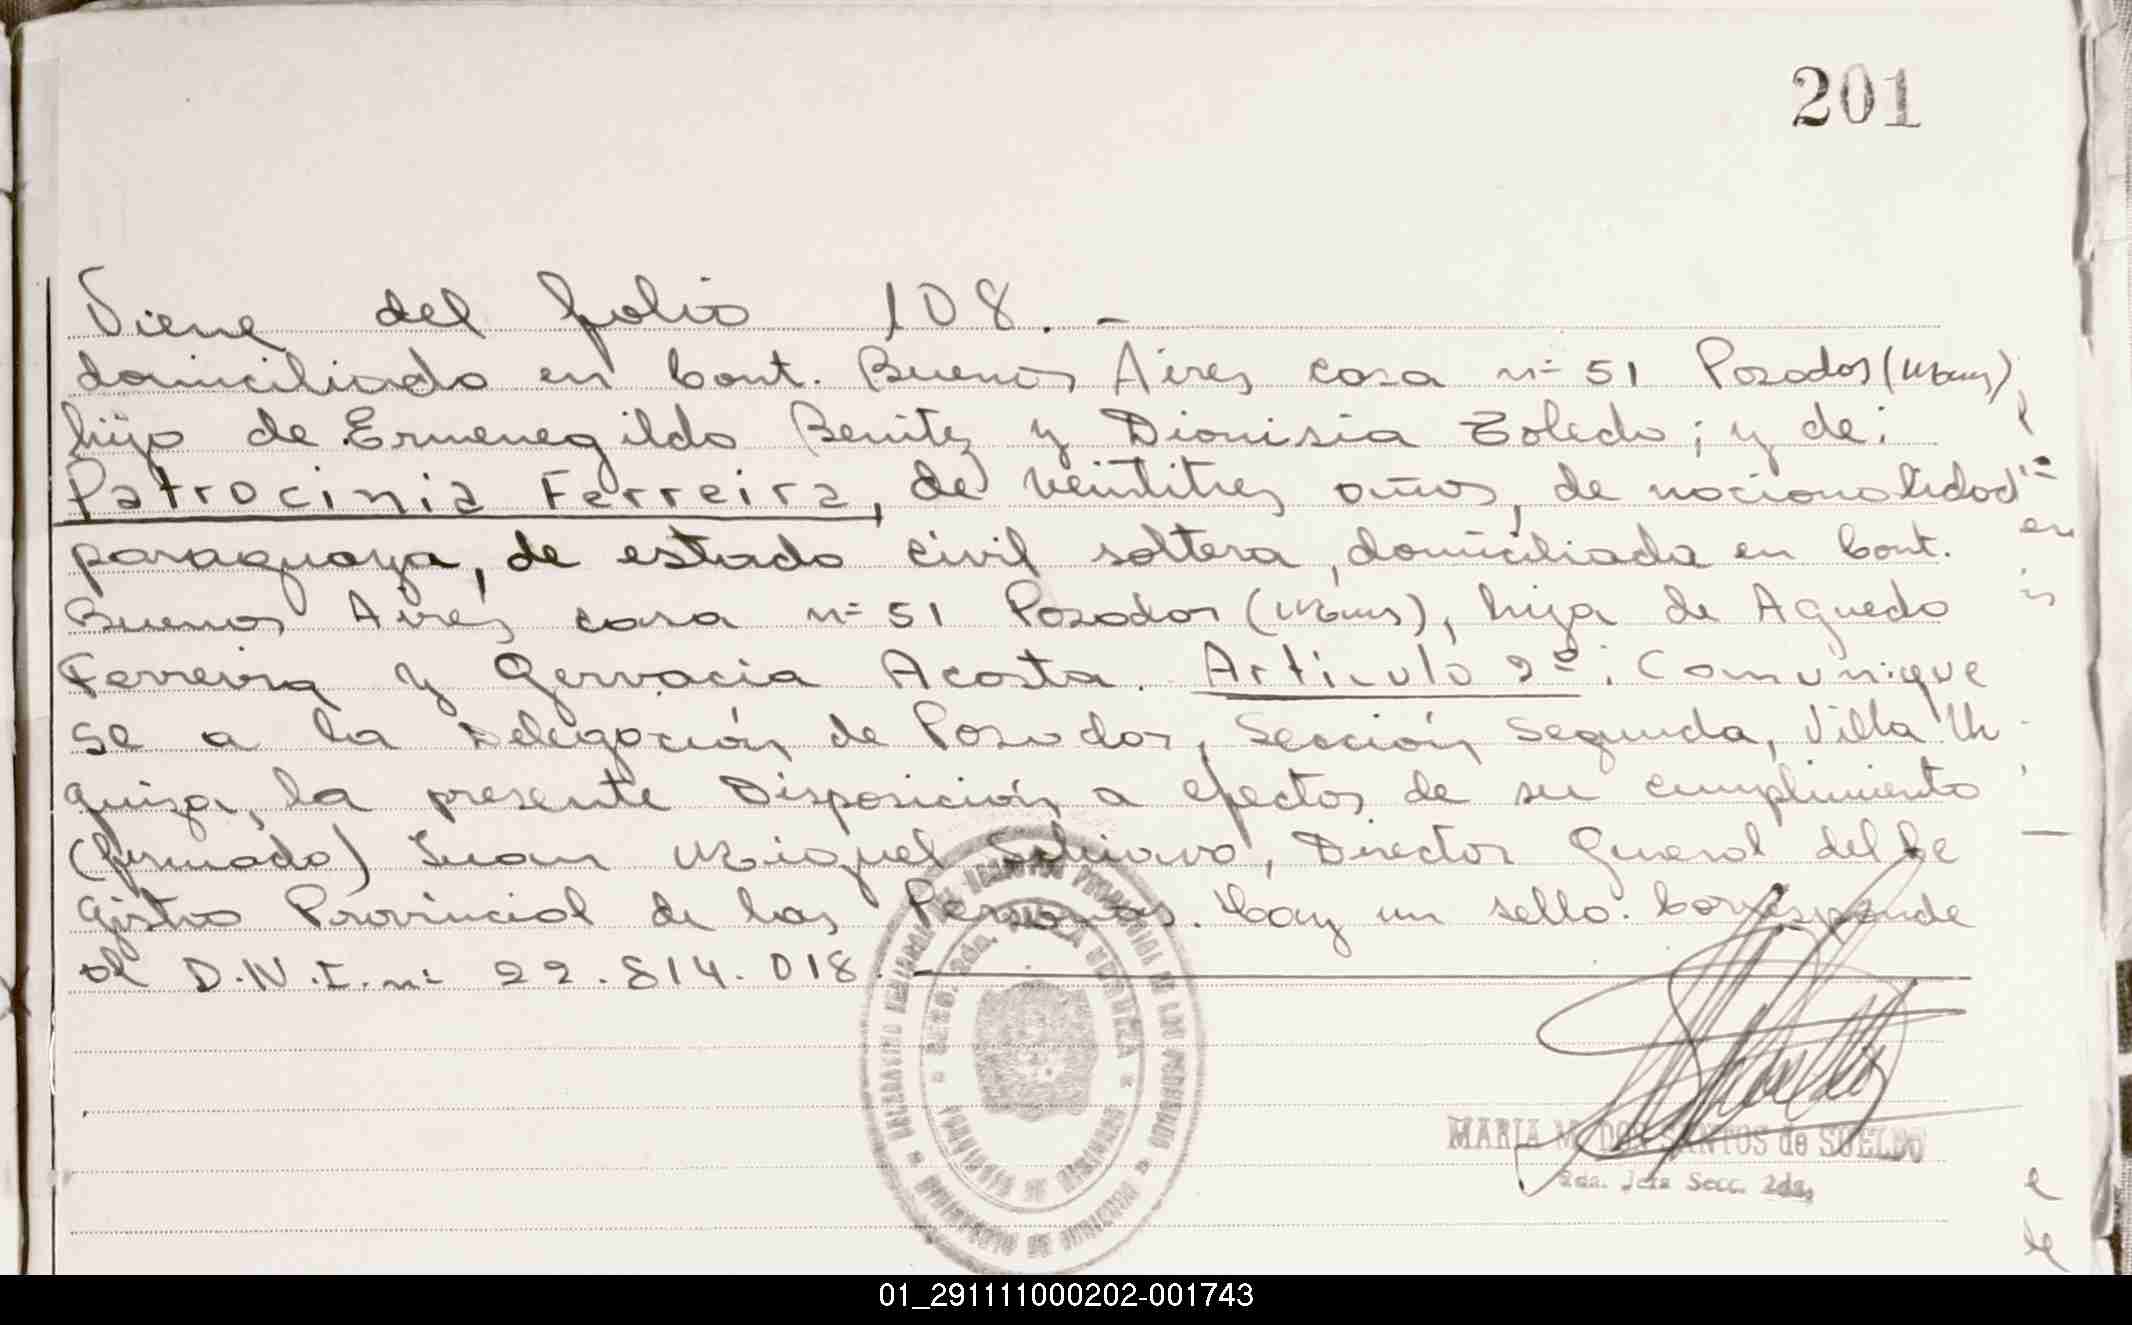 201
Viene del folio 108. -
domiciliado en Cont. Buenos Aires casa nº 51 Posadas (Mnes)
hijo de Ermenegildo Benitez y Dionisia Toledo; y de:
Patrocinia Ferreira, de veintitres años, de nacionalidad
paraguaya, de estado civil soltera, domiciliada en Cont.
Buenos Aires casa nº 51 Posadas (Mnes), hija de Aguedo
Ferreira y Gervacia Acosta. Artículo 2º: Comunique
se a la Delegación de Posadas, Sección Segunda, Villa Ur
quiza, la presente Disposición a efectos de su cumplimiento
(firmado) Juan Miguel Schiavo, Director General del Re
gistro Provincial de las Personas. Hay un sello. Corresponde
al D.N.I. nº 22.814.018.
MARIA M. DOS SANTOS de SUELDO
2da. Jefa Secc. 2da.
PROVINCIA DE MISIONES
MINISTERIO DE GOBIERNO
01_291111000202-001743